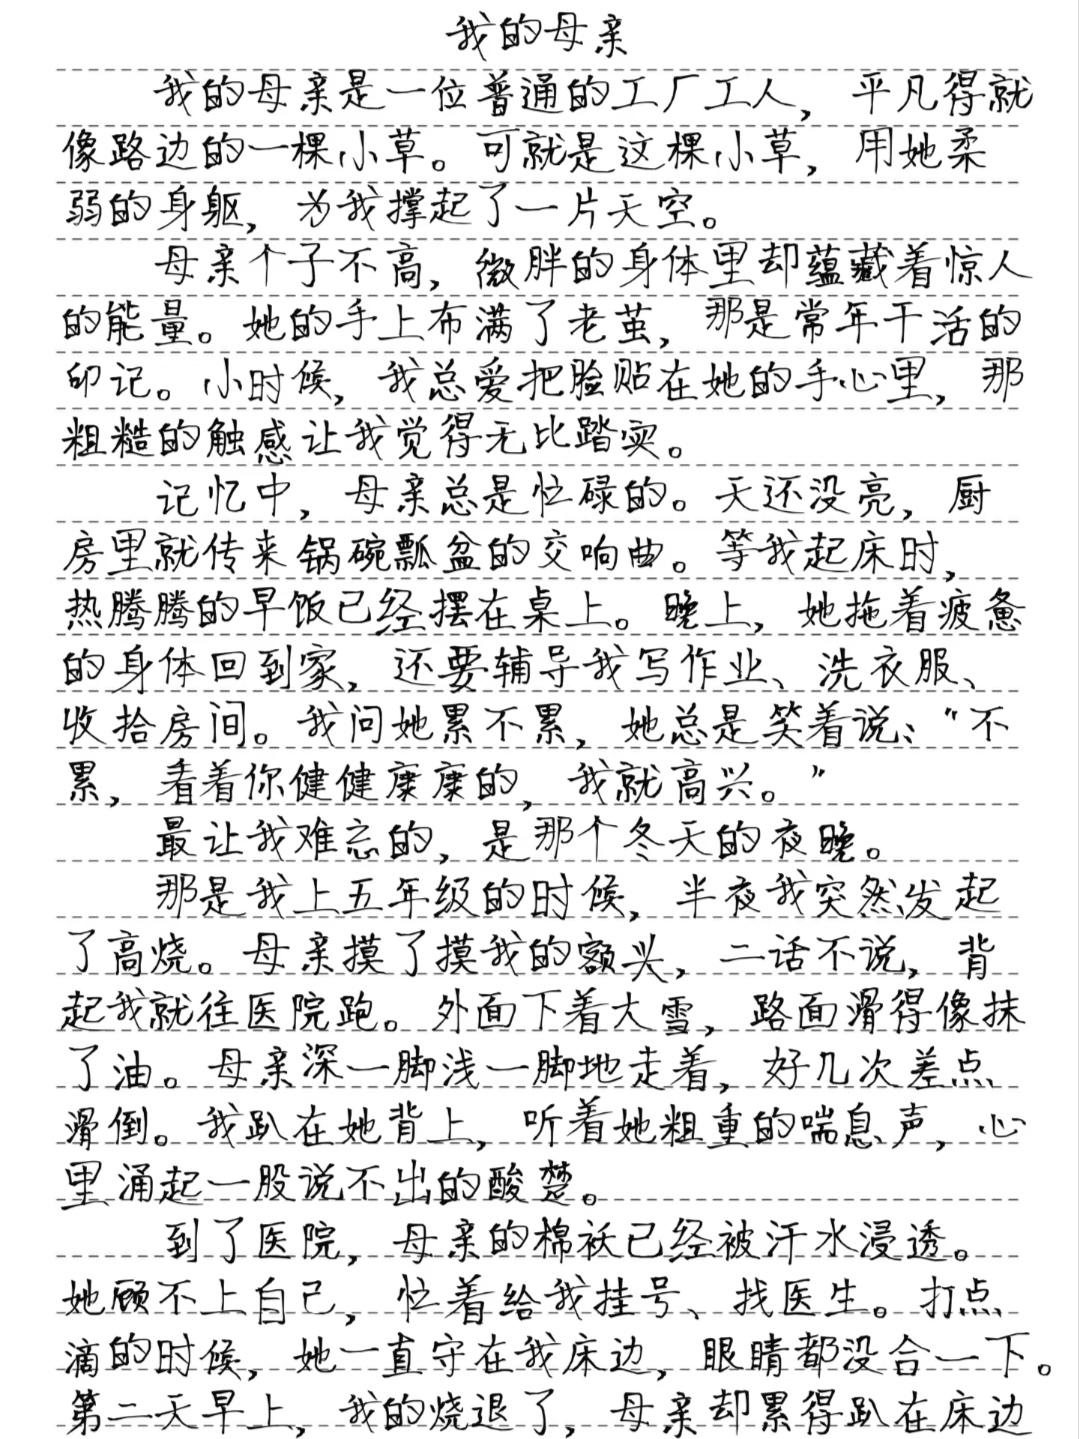 我的母亲
我的母亲是一位普通的工厂工人，平凡得就
像路边的一棵小草。可就是这棵小草，用她柔
弱的身躯，为我撑起了一片天空。
母亲个子不高，微胖的身体里却蕴藏着惊人
的能量。她的手上布满了老茧，那是常年干活的
印记。小时候，我总爱把脸贴在她的手心里，那
粗糙的触感让我觉得无比踏实。
记忆中，母亲总是忙碌的。天还没亮，厨
房里就传来锅碗瓢盆的交响曲。等我起床时，
热腾腾的早饭已经摆在桌上。晚上，她拖着疲惫
的身体回到家，还要辅导我写作业、洗衣服、
收拾房间。我问她累不累，她总是笑着说：“不
累，看着你健健康康的，我就高兴。”
最让我难忘的，是那个冬天的夜晚。
那是我上五年级的时候，半夜我突然发起
了高烧。母亲摸了摸我的额头，二话不说，背
起我就往医院跑。外面下着大雪，路面滑得像抹
了油。母亲深一脚浅一脚地走着，好几次差点
滑倒。我趴在她背上，听着她粗重的喘息声，心
里涌起一股说不出的酸楚。
到了医院，母亲的棉袄已经被汗水浸透。
她顾不上自己，忙着给我挂号、找医生。打点
滴的时候，她一直守在我床边，眼睛都没合一下。
第二天早上，我的烧退了，母亲却累得趴在床边